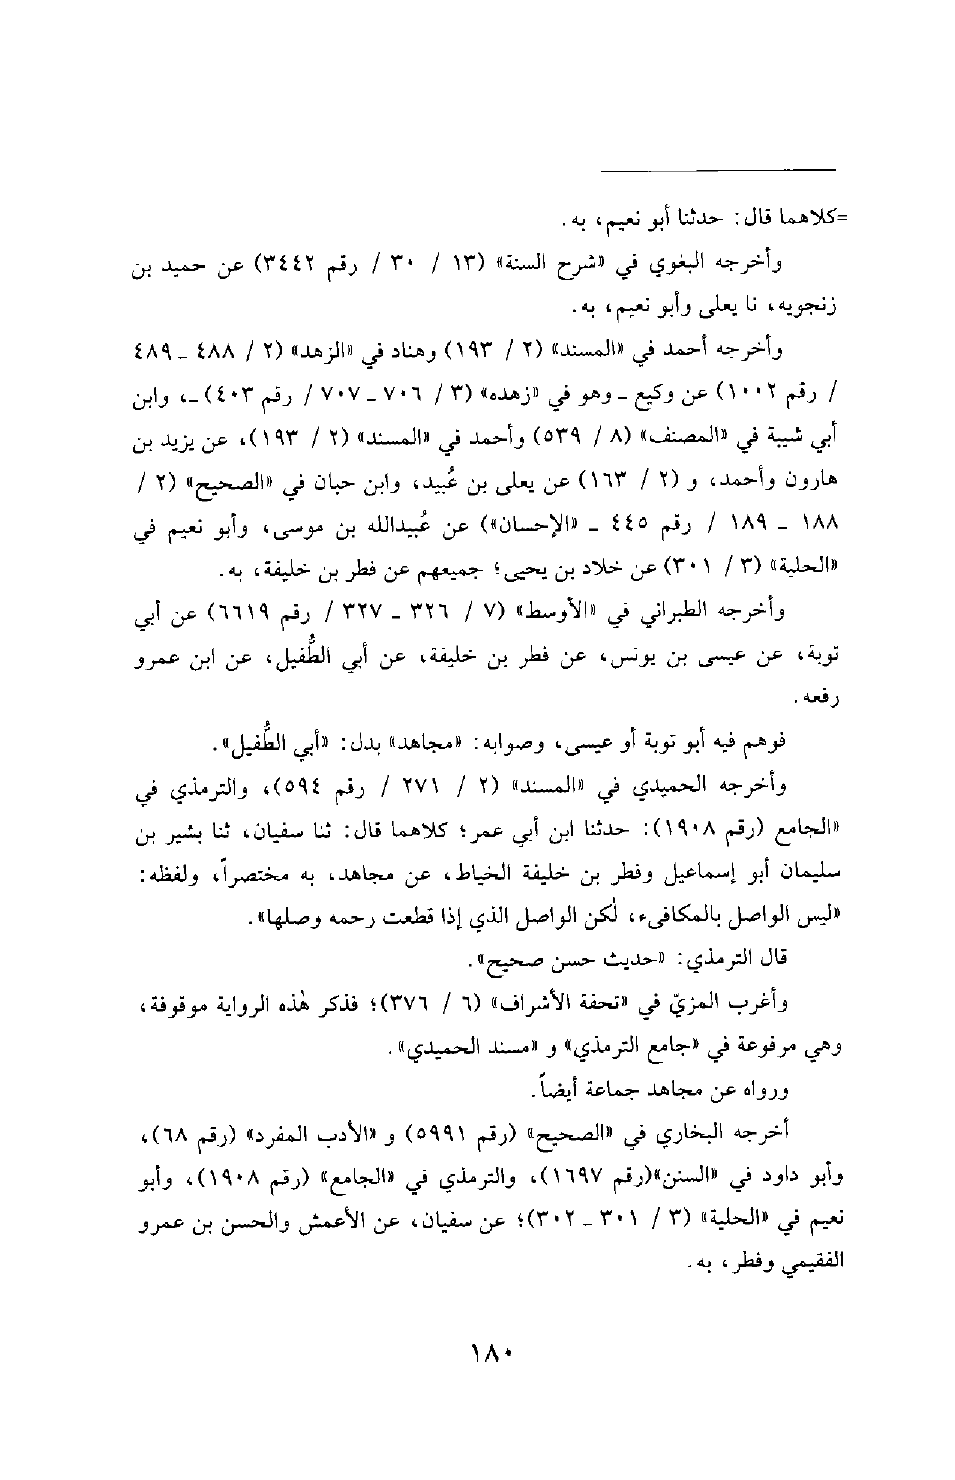 =كلاهما قال: حدثنا أبو نعيم، به.
وأخرجه البغوي في «شرح السنة» (١٣ / ٣٠ / رقم ٣٤٤٢) عن حميد بن
زنجويه، نا يعلى وأبو نعيم، به.
وأخرجه أحمد في «المسند» (٢ / ١٩٣) وهناد في «الزهد» (٢ / ٤٨٨ ـ ٤٨٩
/ رقم ١٠٠٢) عن وكيع ـ وهو في «زهده» (٣ / ٧٠٦ ـ ٧٠٧ / رقم ٤٠٣) ـ، وابن
أبي شيبة في «المصنف» (٨ / ٥٣٩) وأحمد في «المسند» (٢ / ١٩٣)، عن يزيد بن
هارون وأحمد، و (٢ / ١٦٣) عن يعلى بن عُبيد، وابن حبان في «الصحيح» (٢ /
١٨٨ ـ ١٨٩ / رقم ٤٤٥ ـ «الإحسان») عن عُبيدالله بن موسى، وأبو نعيم في
«الحلية» (٣ / ٣٠١) عن خلاد بن يحيى؛ جميعهم عن فطر بن خليفة، به.
وأخرجه الطبراني في «الأوسط» (٧ / ٣٢٦ ـ ٣٢٧ / رقم ٦٦١٩) عن أبي
توبة، عن عيسى بن يونس، عن فطر بن خليفة، عن أبي الطُّفيل، عن ابن عمرو
رفعه.
فوهم فيه أبو توبة أو عيسى، وصوابه: «مجاهد» بدل: «أبي الطُّفيل».
وأخرجه الحميدي في «المسند» (٢ / ٢٧١ / رقم ٥٩٤)، والترمذي في
«الجامع (رقم ١٩٠٨): حدثنا ابن أبي عمر؛ كلاهما قال: ثنا سفيان، ثنا بشير بن
سليمان أبو إسماعيل وفطر بن خليفة الخياط، عن مجاهد، به مختصراً، ولفظه:
«ليس الواصل بالمكافىء، لٰكن الواصل الذي إذا قطعت رحمه وصلها».
قال الترمذي: «حديث حسن صحيح».
وأغرب المزيّ في «تحفة الأشراف» (٦ / ٣٧٦)؛ فذكر هٰذه الرواية موقوفة،
وهي مرفوعة في «جامع الترمذي» و «مسند الحميدي».
ورواه عن مجاهد جماعة أيضاً.
أخرجه البخاري في «الصحيح» (رقم ٥٩٩١) و «الأدب المفرد» (رقم ٦٨)،
وأبو داود في «السنن»(رقم ١٦٩٧)، والترمذي في «الجامع» (رقم ١٩٠٨)، وأبو
نعيم في «الحلية» (٣ / ٣٠١ ـ ٣٠٢)؛ عن سفيان، عن الأعمش والحسن بن عمرو
الفقيمي وفطر، به.
١٨٠